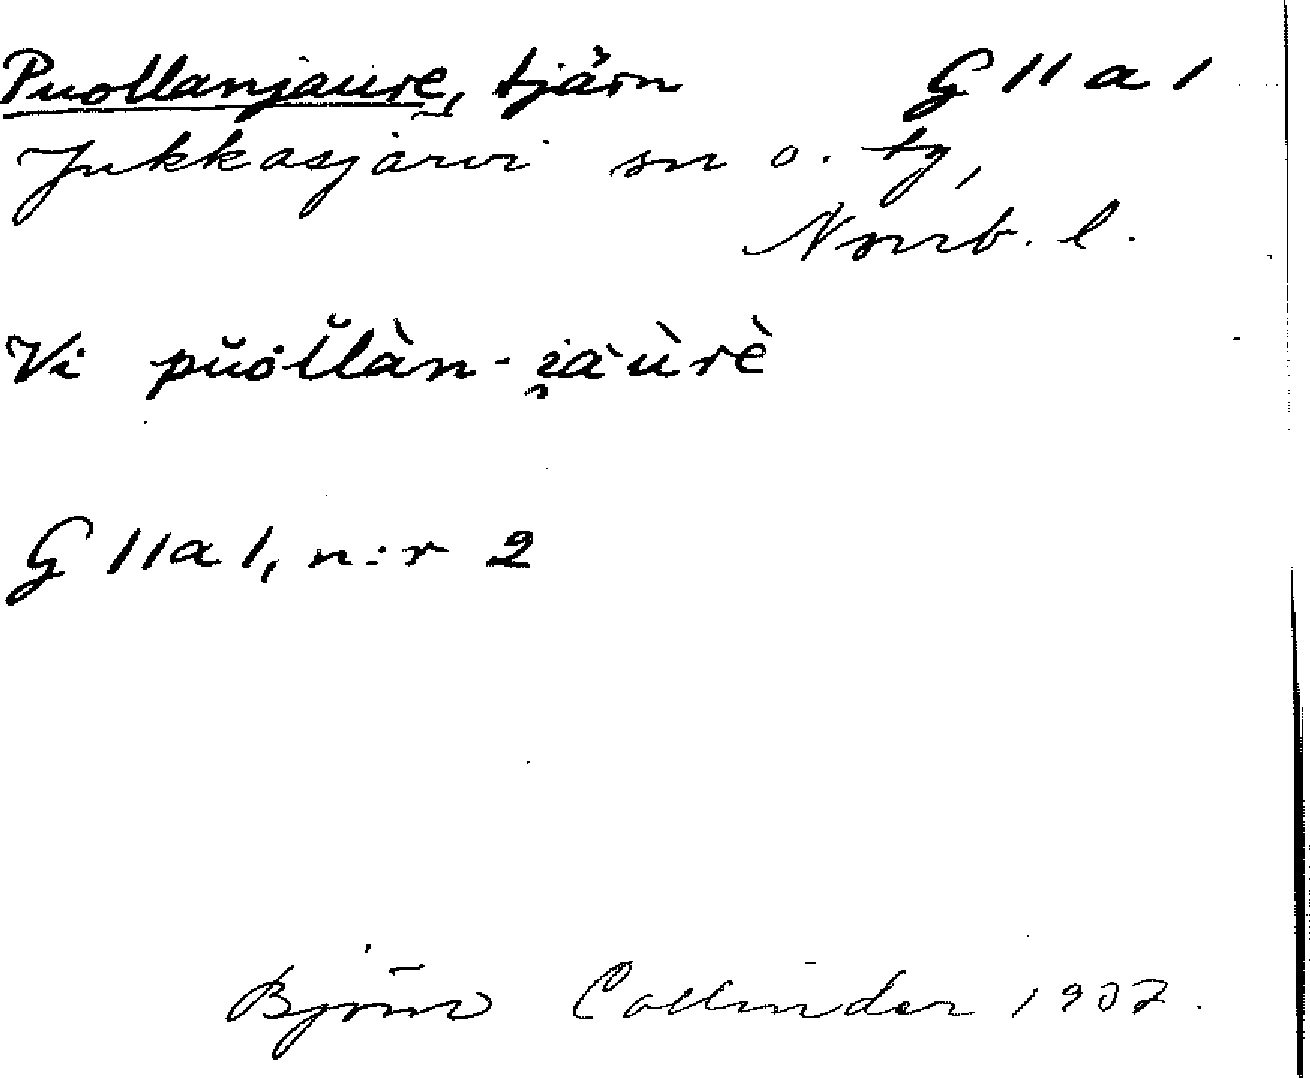 Puollanjaure, tjärn G 11 a 1
Jukkasjärvi sn o. tg,
Norrb. l.
Vi pŭŏl̆làn-i̯a`ùrè
G 11 a 1, n:r 2
Björn Collinder 1937.